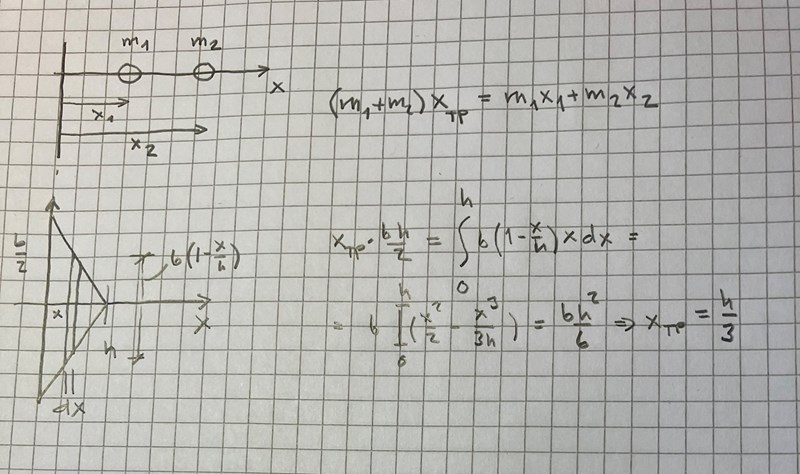 m₁ m₂
x
x₁
x₂
(m₁+m₂) x_тр = m₁x₁+m₂x₂
b/2
b(1-x/h)
x
x
h
dx
x_тр · bh/2 = ∫₀ʰ b(1-x/h) x dx =
= b [₀ʰ (x²/2 - x³/3h) = bh²/6 ⇒ x_тр = h/3